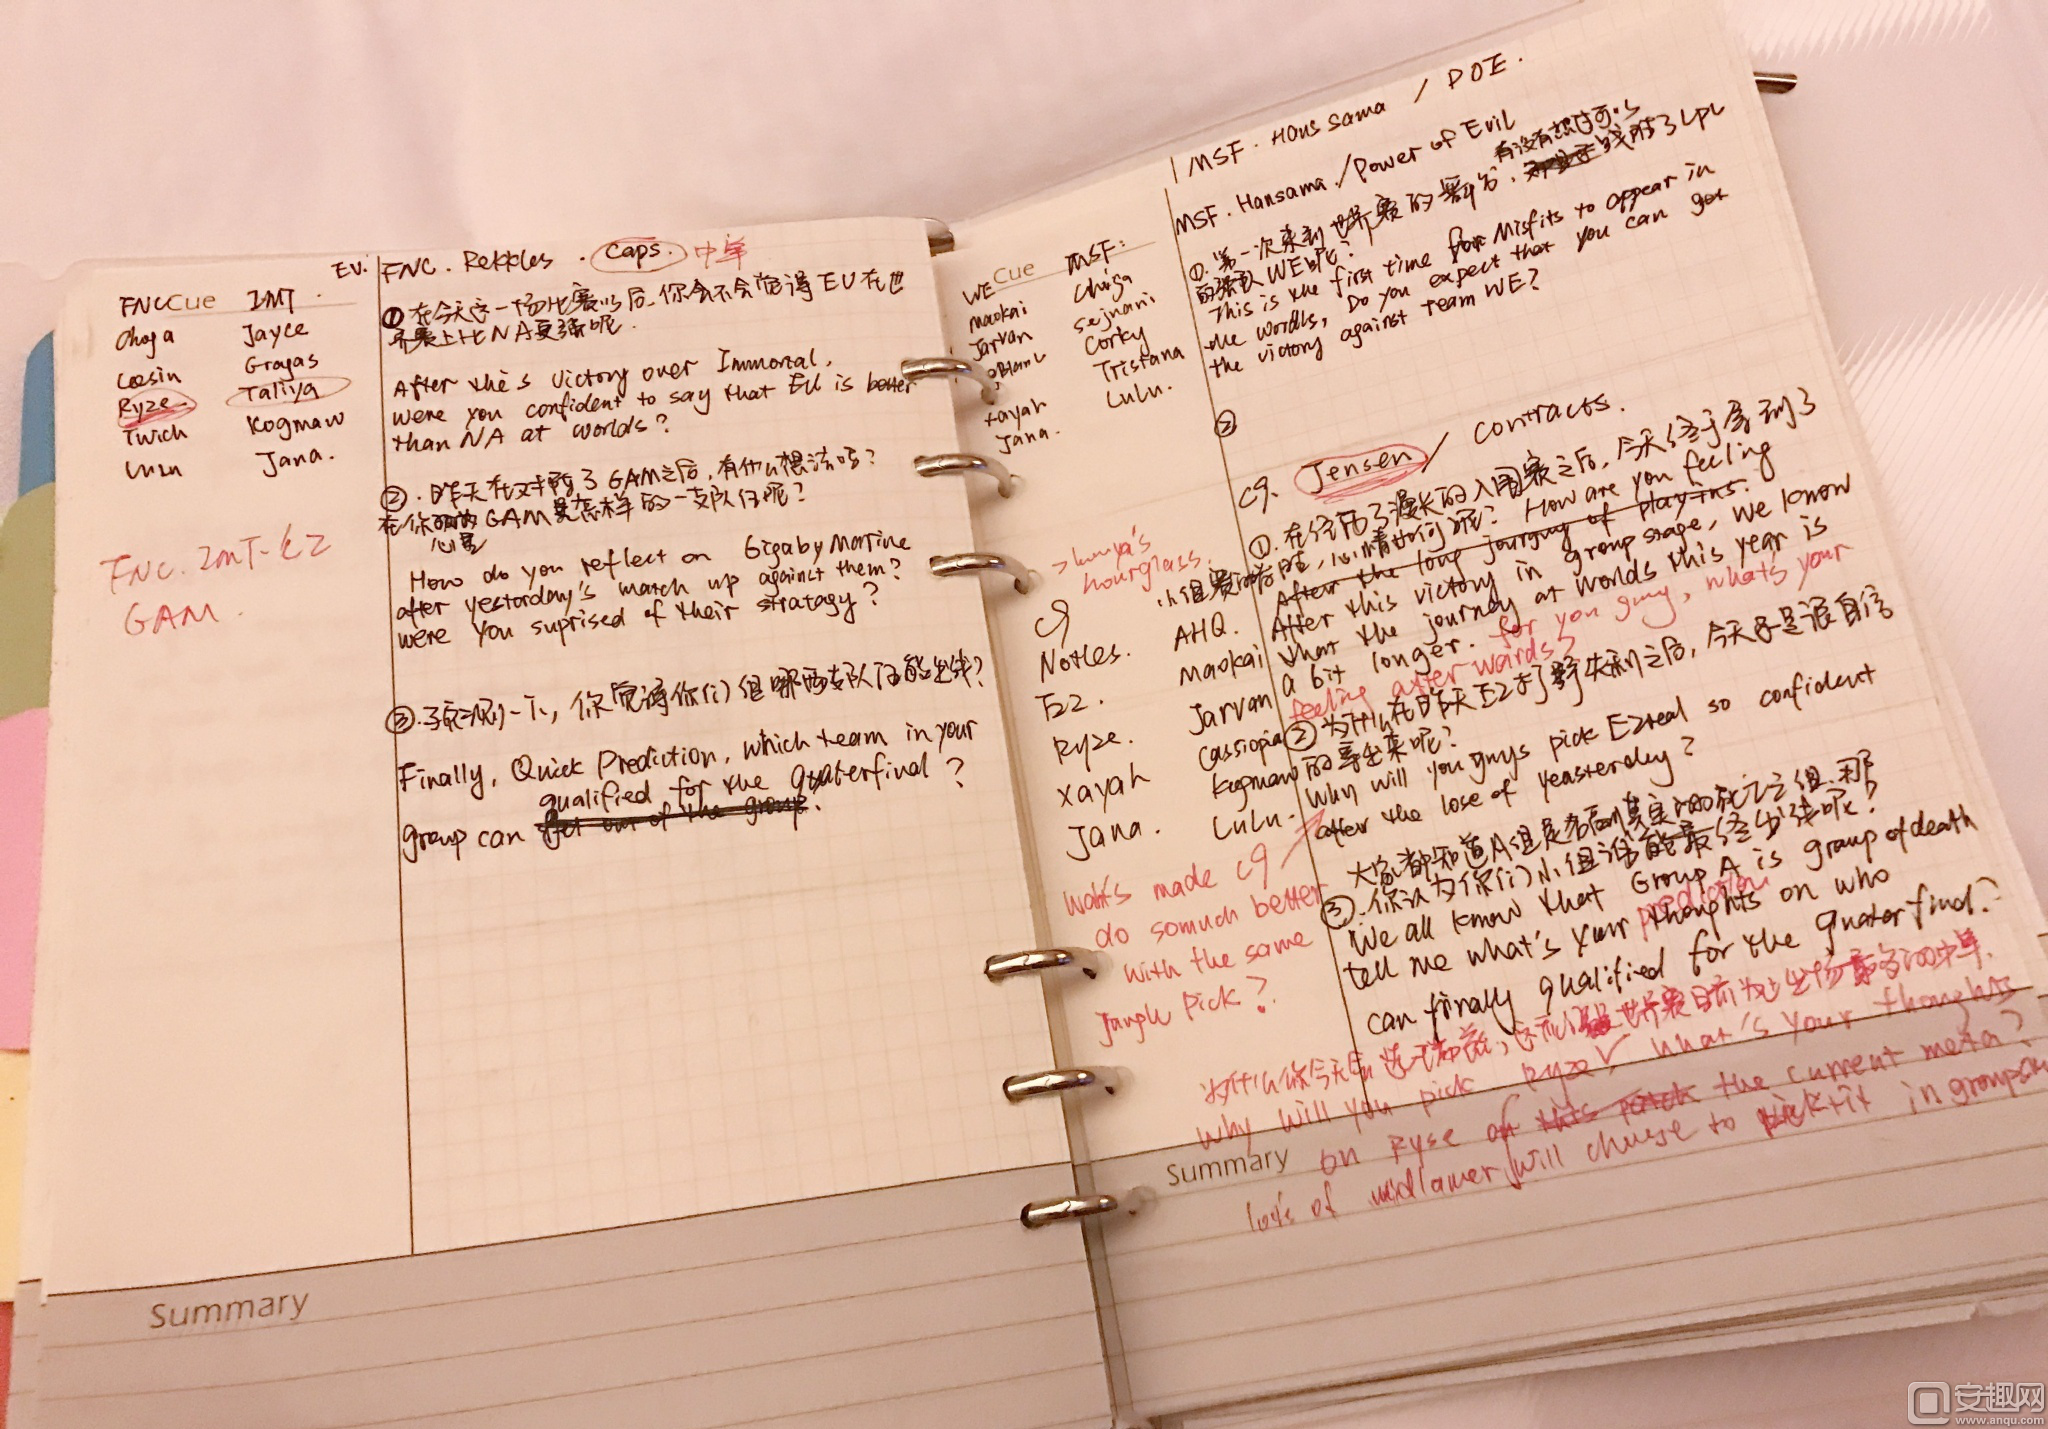 EU. FNC. Rekkles. Caps. 中单
FNC Cue IMT.
Choga Jayce
Leesin Gragas
Ryze. Taliya
Twich Kogmaw
Lulu Jana.
FNC. IMT.
GAM.
①在今天这一场比赛以后,你会不会觉得EU在世
界赛上比NA更强呢.
After this victory over Immortal,
were you confident to say that EU is better
than NA at worlds?
②.昨天在对阵了GAM之后,有什么想法吗?
在你心里GAM是怎样的一支队伍呢?
How do you reflect on Gigaby Marine
after yesterday's match up against them?
were you suprised of their stratagy?
③.预测一下,你觉得你们组哪两支队伍能出线?
Finally, Quick Prediction, which team in your
qualified for the quaterfinal?
group can get out of the group.
Summary
MSF. Hans sama / POE.
MSF. Hansama./Power of Evil
WE Cue MSF:
Maokai Choga
Jarvan Sejnani
Corky
Xayah Tristana
Jana. Lulu.
①.第一次来到世界赛的舞台,有没有想过可以战胜了LPL
的强队WE呢?
This is the first time for Misfits to appear in
the worlds, Do you expect that you can get
the victory against team WE?
②
C9. Jensen / contracts.
①.在经历了漫长的入围赛之后,今天终于拿到了
小组赛的首胜,心情如何呢? How are you feeling
After the long journey of play-ins.
After this victory in group stage, we know
that the journey at worlds this year is
a bit longer. for you guy, what's your
feeling after wards?
hourglass.
C9 AHQ.
Notles. Maokai
EZ. Jarvan
Ryze. Cassiopia
Xayah Kogmaw
Jana. Lulu.
②为什么在昨天EZ失利之后,今天还是很自信
的拿出来呢?
Why will you guys pick Ezreal so confident
after the lose of yeasterday?
大家都知道A组是死亡之组,那
③.你认为你们小组谁能最终出线呢?
We all know that Group A is group of death
prediction
tell me what's your thoughts on who
can finally qualified for the quater find?
Wahts made C9
do somuch better
with the same
Jungle pick?
why will you pick Ryze What's your thoughts
on Ryse of this patch the current meta?
Summary
lots of midlaner will chuose to pick it in
安趣网
www.anqu.com